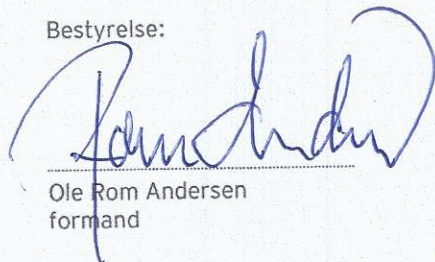 Bestyrelse:
Rom Andersen
Ole Rom Andersen
formand